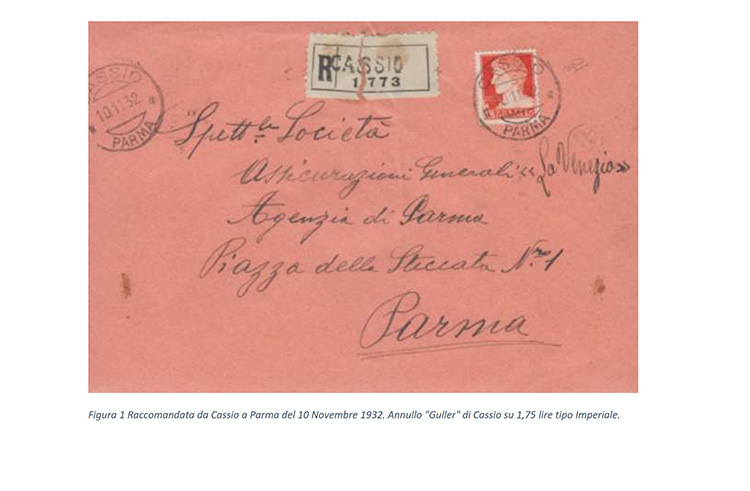 CASSIO
10.11.32
PARMA
R CASSIO
1773
CASSIO
PARMA
Spett.le Società
Assicurazioni Generali «La Venezia»
Agenzia di Parma
Piazza della Steccata Nr. 1
Parma
Figura 1 Raccomandata da Cassio a Parma del 10 Novembre 1932. Annullo "Guller" di Cassio su 1,75 lire tipo Imperiale.